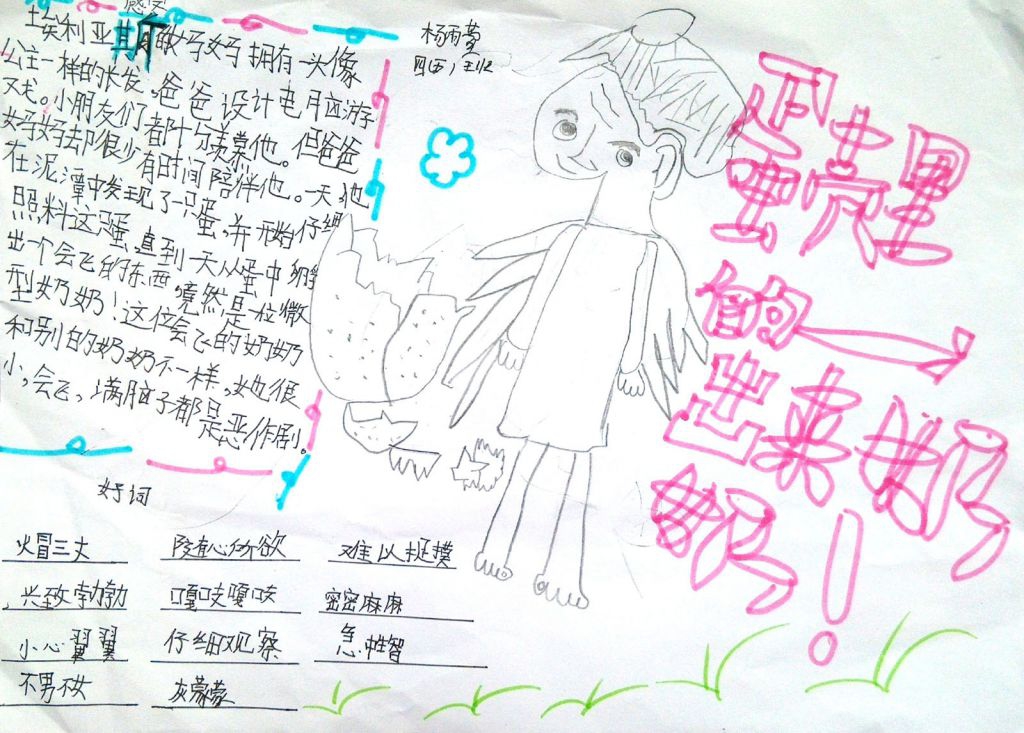 感受
埃利亚其好好拥有一头像
公主一样的长发，爸爸设计电脑游
戏。小朋友们都十分羡慕他。但爸爸
好好却很少有时间陪伴他。一天，他
在泥潭中发现了一只蛋，并开始仔细
照料这只蛋，直到一天从蛋中孵
出一个会飞的东西，竟然是一位微
型奶奶！这位会飞的奶奶
和别的奶奶不一样，她很
小，会飞，满脑子都是恶作剧。
杨雨蒙
四(五)
蛋壳里
的
出来奶
奶！
好词
火冒三丈 随心所欲 难以捉摸
兴致勃勃 嘎吱嘎吱 密密麻麻
小心翼翼 仔细观察 急中生智
不男不女 灰蒙蒙